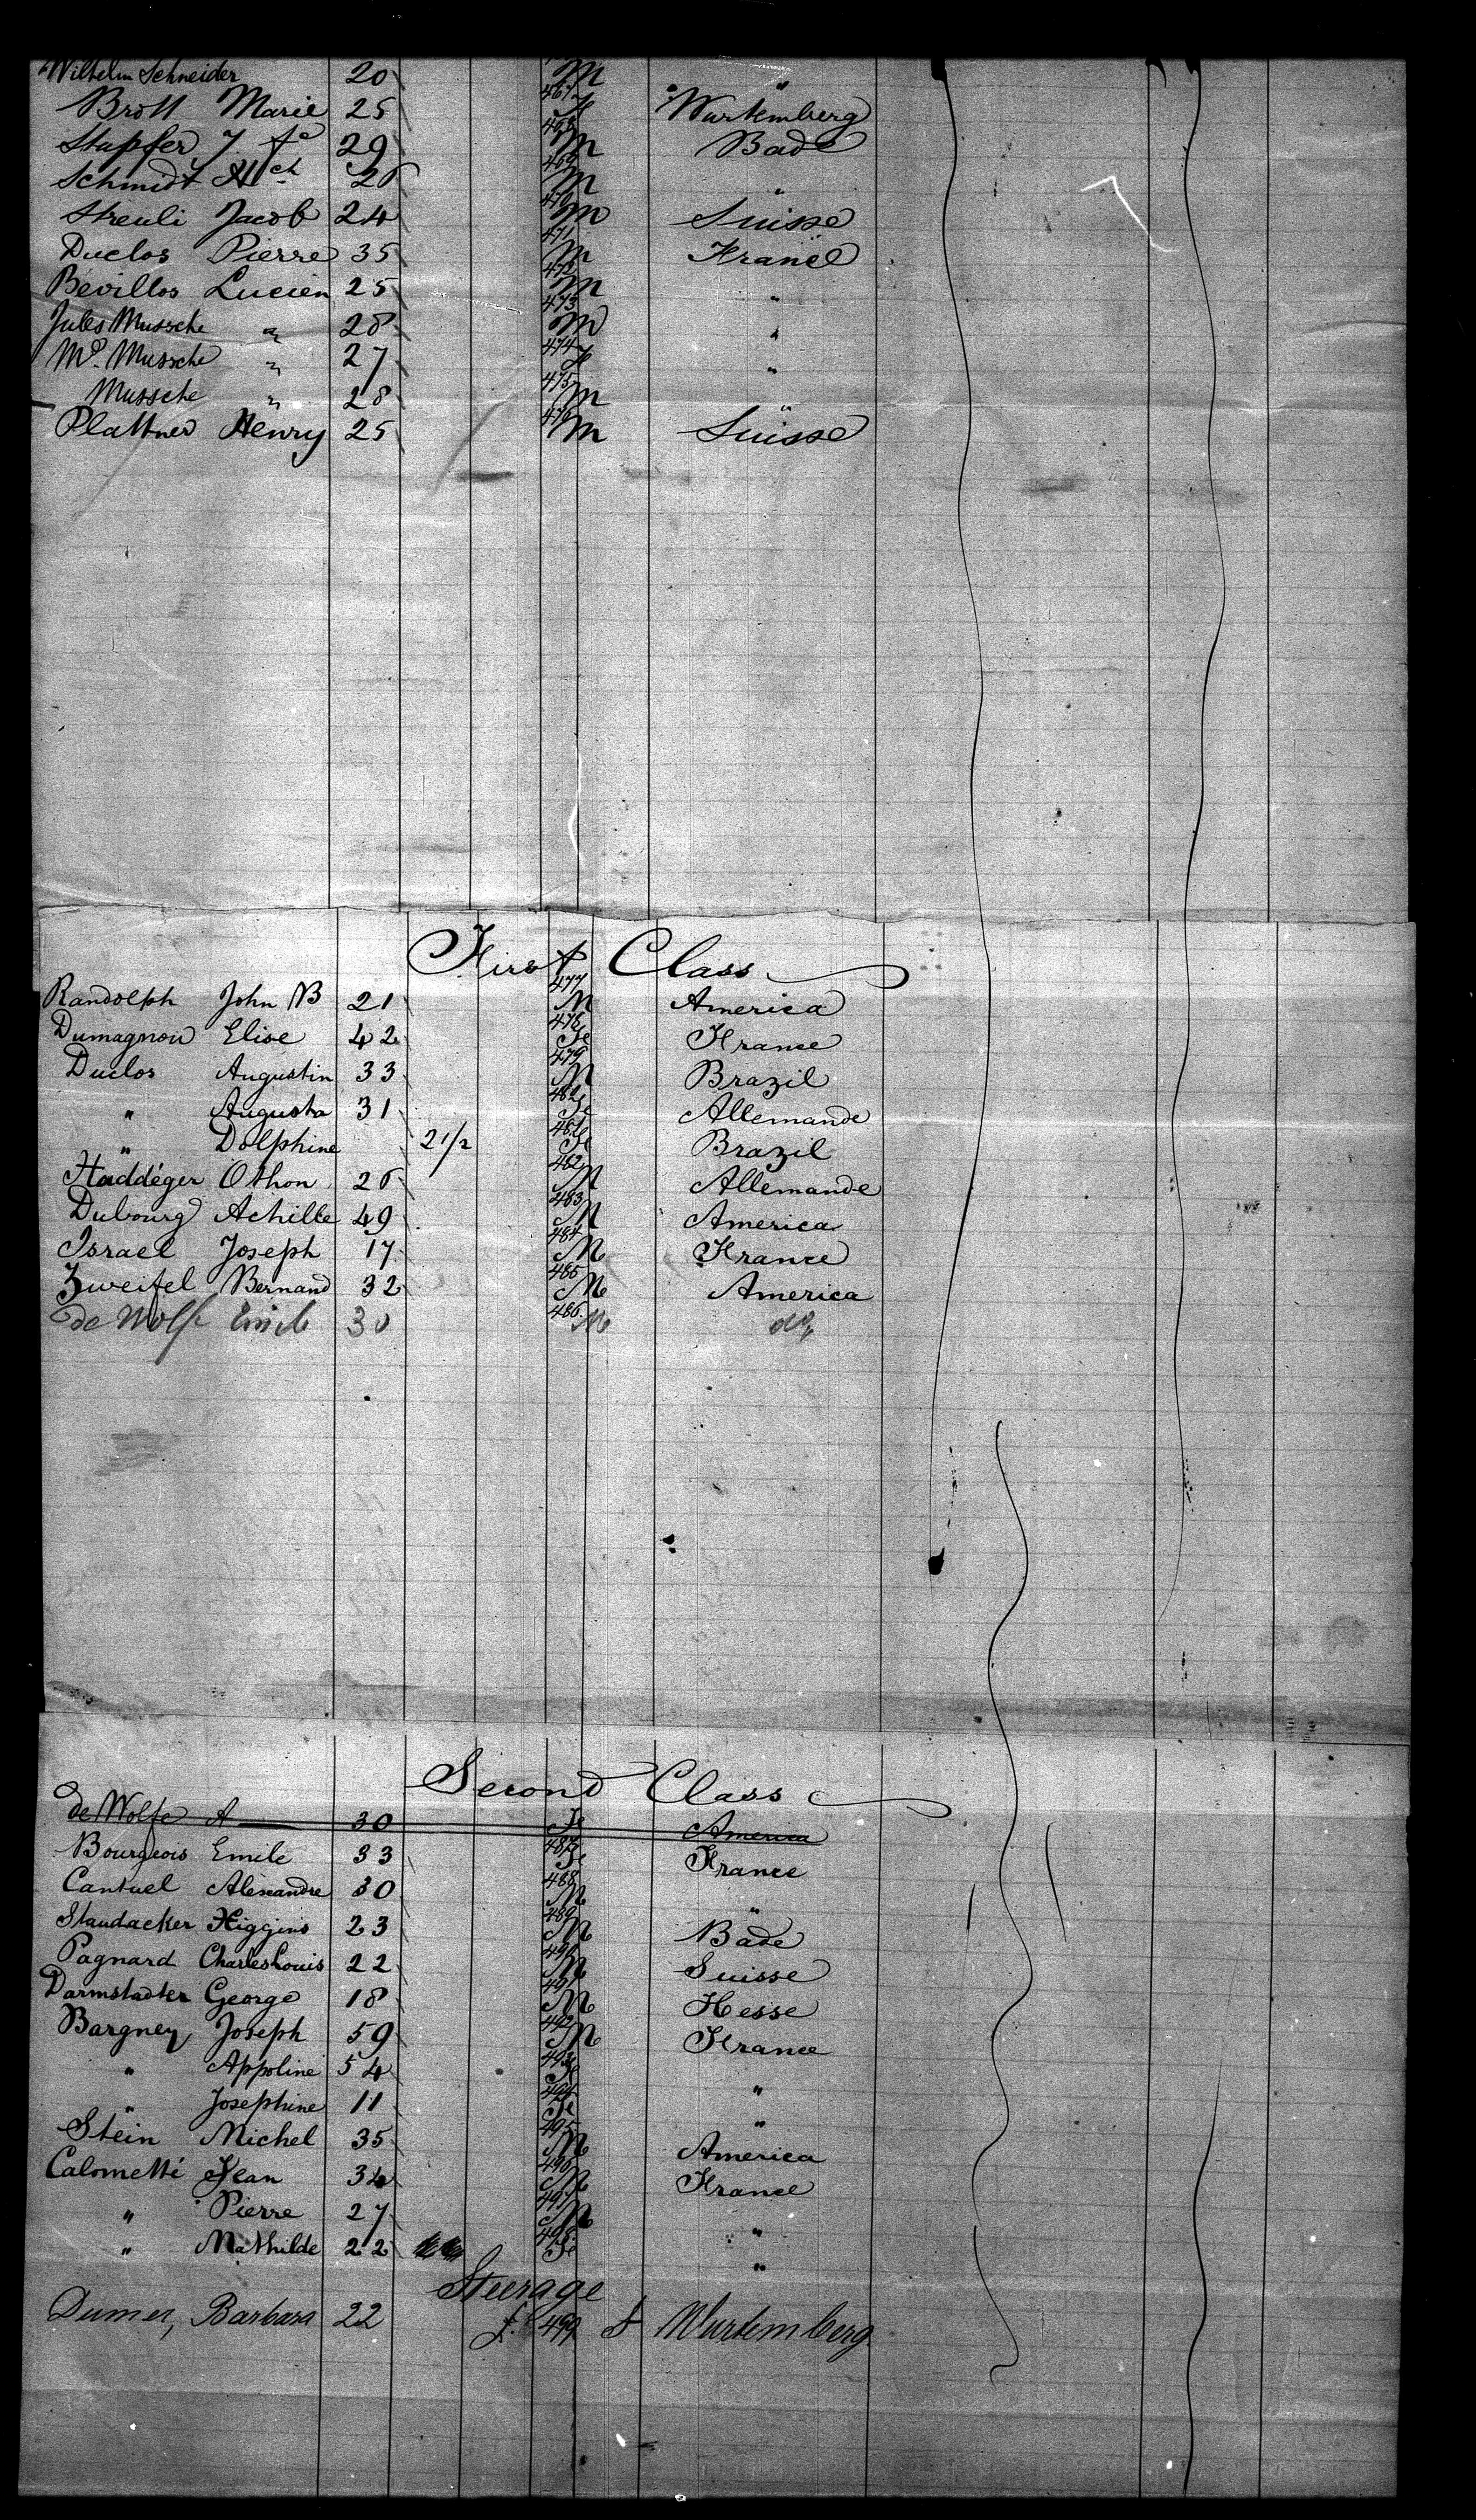 Wilhelm Schneider 20 M "
Brott Marie 25 467 F Wurtemberg
Stupfer J. 29 468 M Bade
Schmidt 26 469 M "
Streuli Jacob 24 470 M Suisse
Duclos Pierre 35 471 M France
Bévillos Lucien 25 472 M "
Jules Mussche " 28 473 M "
Me. Mussche " 27 474 F "
Mussche " 28 475 M "
Plattner Henry 25 476 M Suisse
First Class
Randolph John B 21 477 M America
Dumagnou Elise 42 478 Fe France
Duclos Augustin 33 479 M Brazil
" Augusta 31 480 Fe Allemande
" Dolphine 2 1/2 481 Fe Brazil
Haddéger Othon 26 482 M Allemande
Dubourg Achille 49 483 M America
Israel Joseph 17 484 M France
Zweifel Bernand 32 485 M America
de Wolfe Emile 30 486 M do
Second Class
de Wolfe A 30 Fe America
Bourgeois Emile 33 487 Fe France
Cantuel Alexandre 30 488 M "
Staudacker Higgins 23 489 M Bade
Pagnard Charles Louis 22 490 M Suisse
Darmstadter George 18 491 M Hesse
Bargney Joseph 59 492 M France
" Appoline 54 493 Fe "
" Josephine 11 494 Fe "
Stein Michel 35 495 M America
Calometté Jean 34 496 M France
" Pierre 27 497 M "
" Mathilde 22 498 Fe "
Steerage
Dumer, Barbara 22 f. 499 Wurtemberg